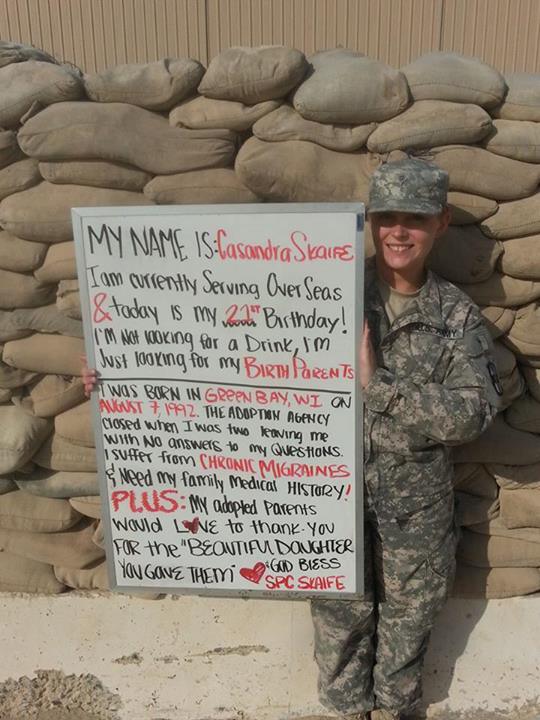 MY NAME IS: Casandra Skaife
I am currently Serving Over Seas
& today is my 21ST Birthday!
I'm Not looking for a Drink, I'm
Just looking for my BIRTH PARENTS
I WAS BORN IN GREEN BAY, WI ON
AUGUST 7, 1992. THE ADOPTION AGENCY
CLOSED WHEN I WAS TWO LEAVING ME
WITH NO ANSWERS to my QUESTIONS.
I SUFFER FROM CHRONIC MIGRAINES
& NEED MY FAMILY MEDICAL HISTORY!
PLUS: My adopted Parents
Would L❤VE to thank-you
FOR the "BEAUTIFUL DAUGHTER
YOU GAVE THEM" ❤ "GOD BLESS
SPC SKAIFE